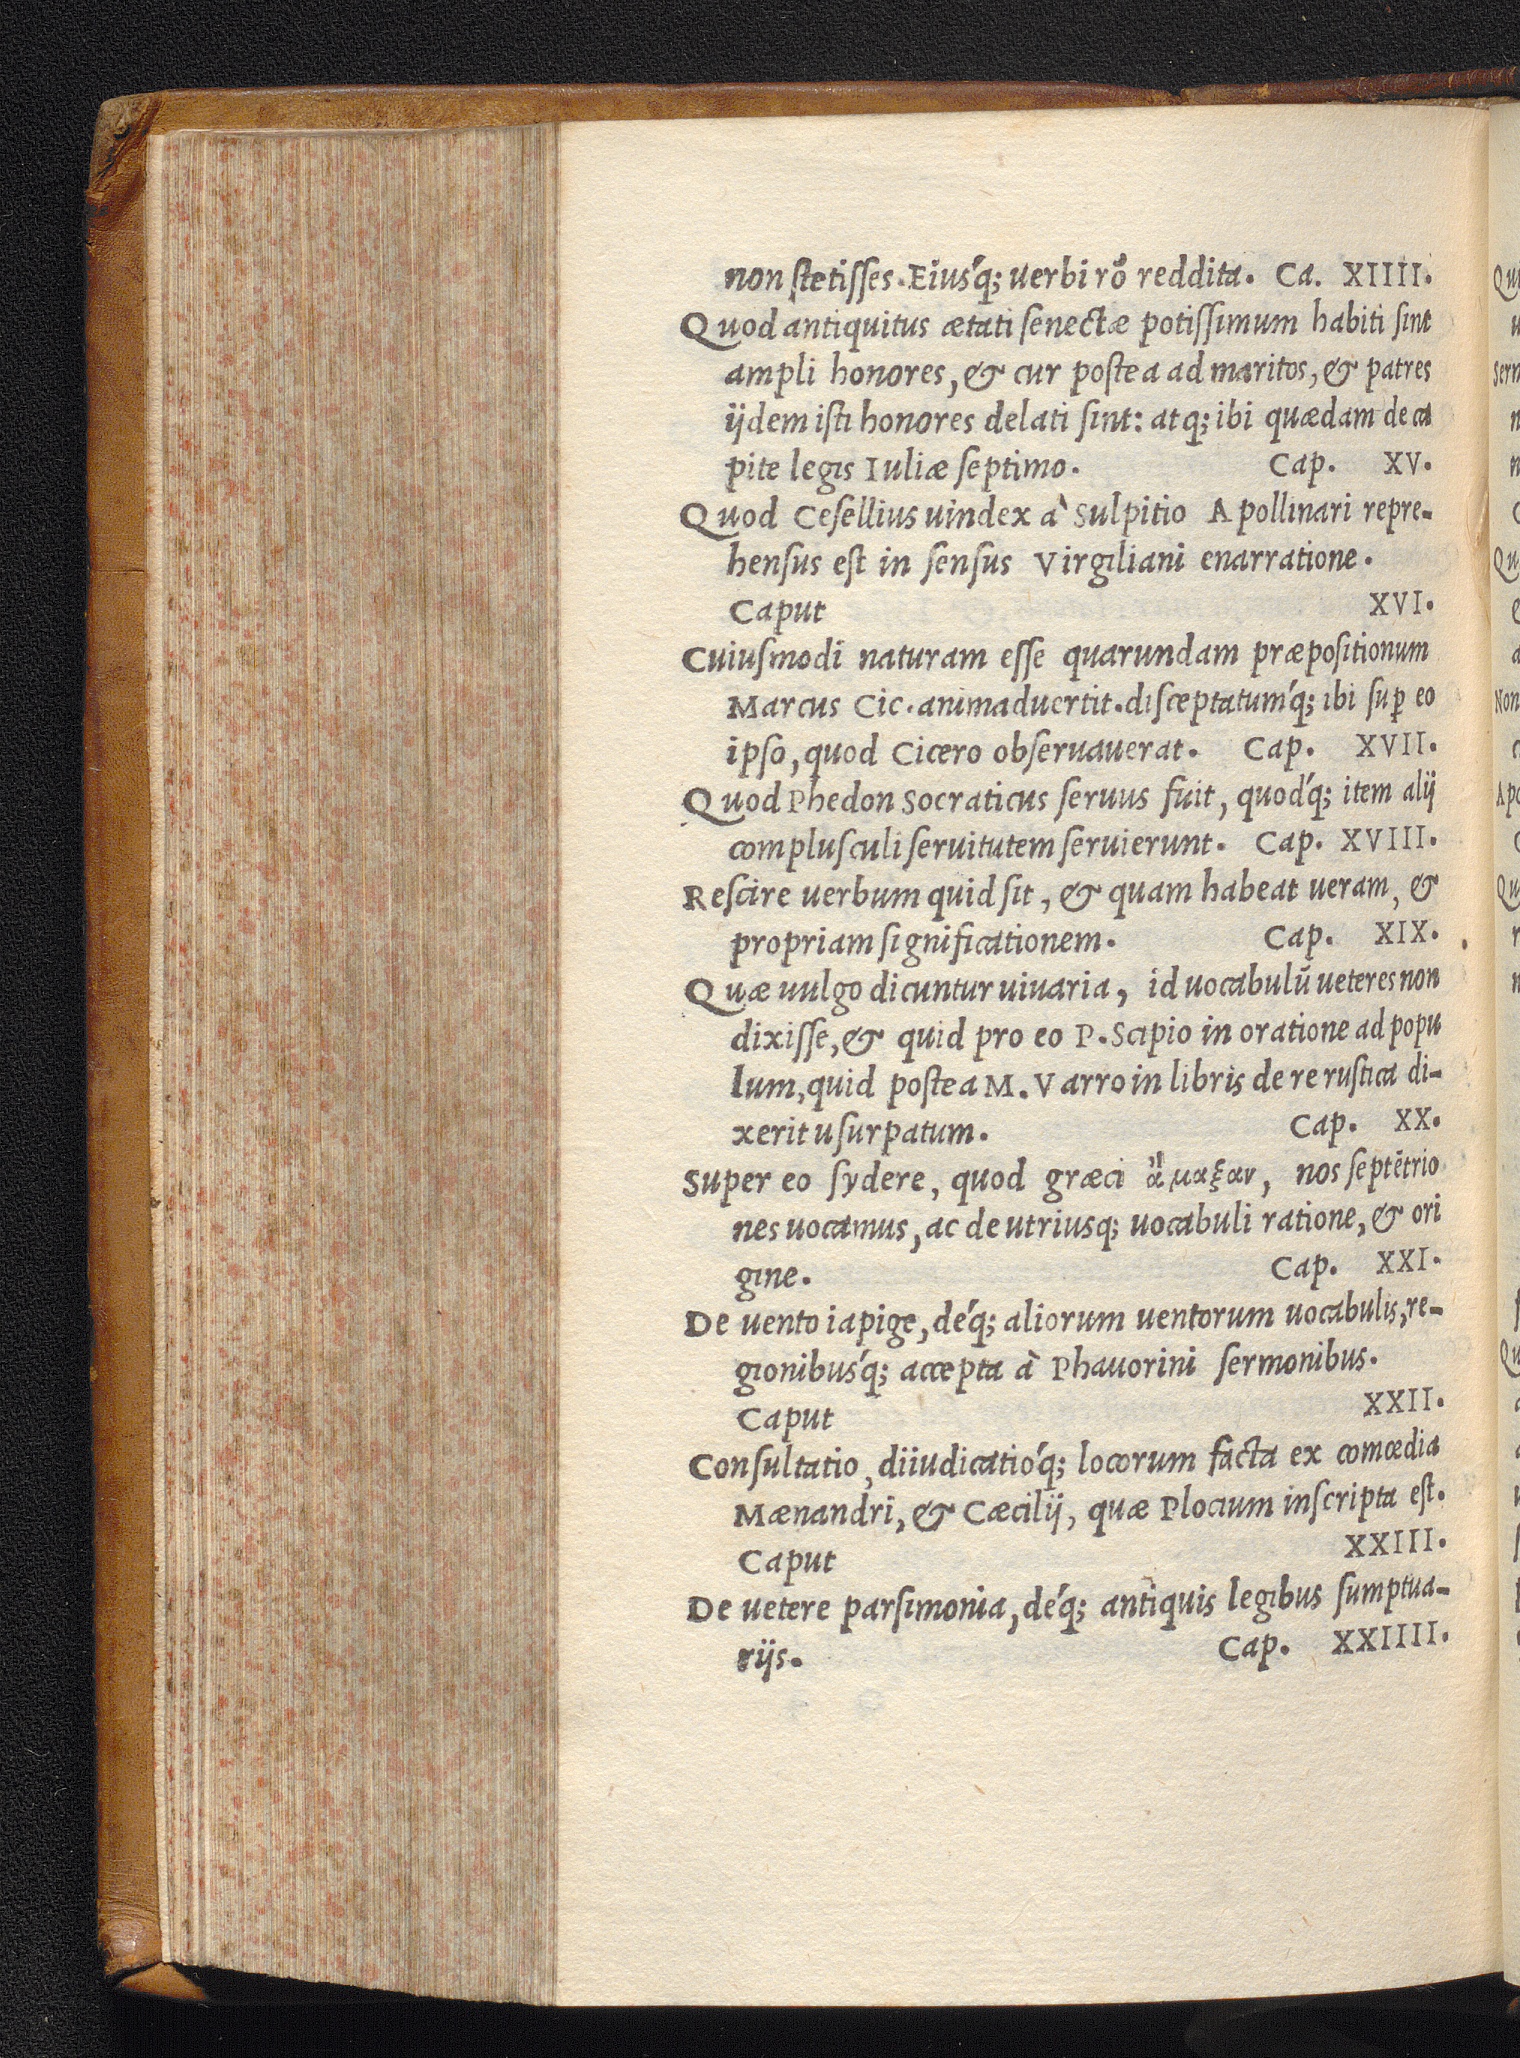 non stetisses. Eius'q; uerbi rõ reddita. Ca. XIIII.
Quod antiquitus ætati senectæ potissimum habiti sint
ampli honores, & cur postea ad maritos, & patres
ijdem isti honores delati sint: atq; ibi quædam de ca
pite legis Iuliæ septimo. Cap. XV.
Quod Cesellius uindex à Sulpitio Apollinari repre-
hensus est in sensus Virgiliani enarratione.
Caput XVI.
Cuiusmodi naturam esse quarundam præpositionum
Marcus Cic. animaduertit. disceptatum'q; ibi sup eo
ipso, quod Cicero obseruauerat. Cap. XVII.
Quod Phedon Socraticus seruus fuit, quod'q; item alij
complusculi seruitutem seruierunt. Cap. XVIII.
Rescire uerbum quid sit, & quam habeat ueram, &
propriam significationem. Cap. XIX.
Quæ uulgo dicuntur uiuaria, id uocabulū ueteres non
dixisse, & quid pro eo P. Scipio in oratione ad popu
lum, quid postea M. Varro in libris de re rustica di-
xerit usurpatum. Cap. XX.
Super eo sydere, quod græci ἅμαξαν, nos septētrio
nes uocamus, ac de utriusq; uocabuli ratione, & ori
gine. Cap. XXI.
De uento iapige, dé'q; aliorum uentorum uocabulis, re-
gionibus'q; accepta à Phauorini sermonibus.
Caput XXII.
Consultatio, diiudicatio'q; locorum facta ex comœdia
Mænandri, & Cæcilij, quæ Plocium inscripta est.
Caput XXIII.
De uetere parsimonia, dé'q; antiquis legibus sumptua-
rijs. Cap. XXIIII.